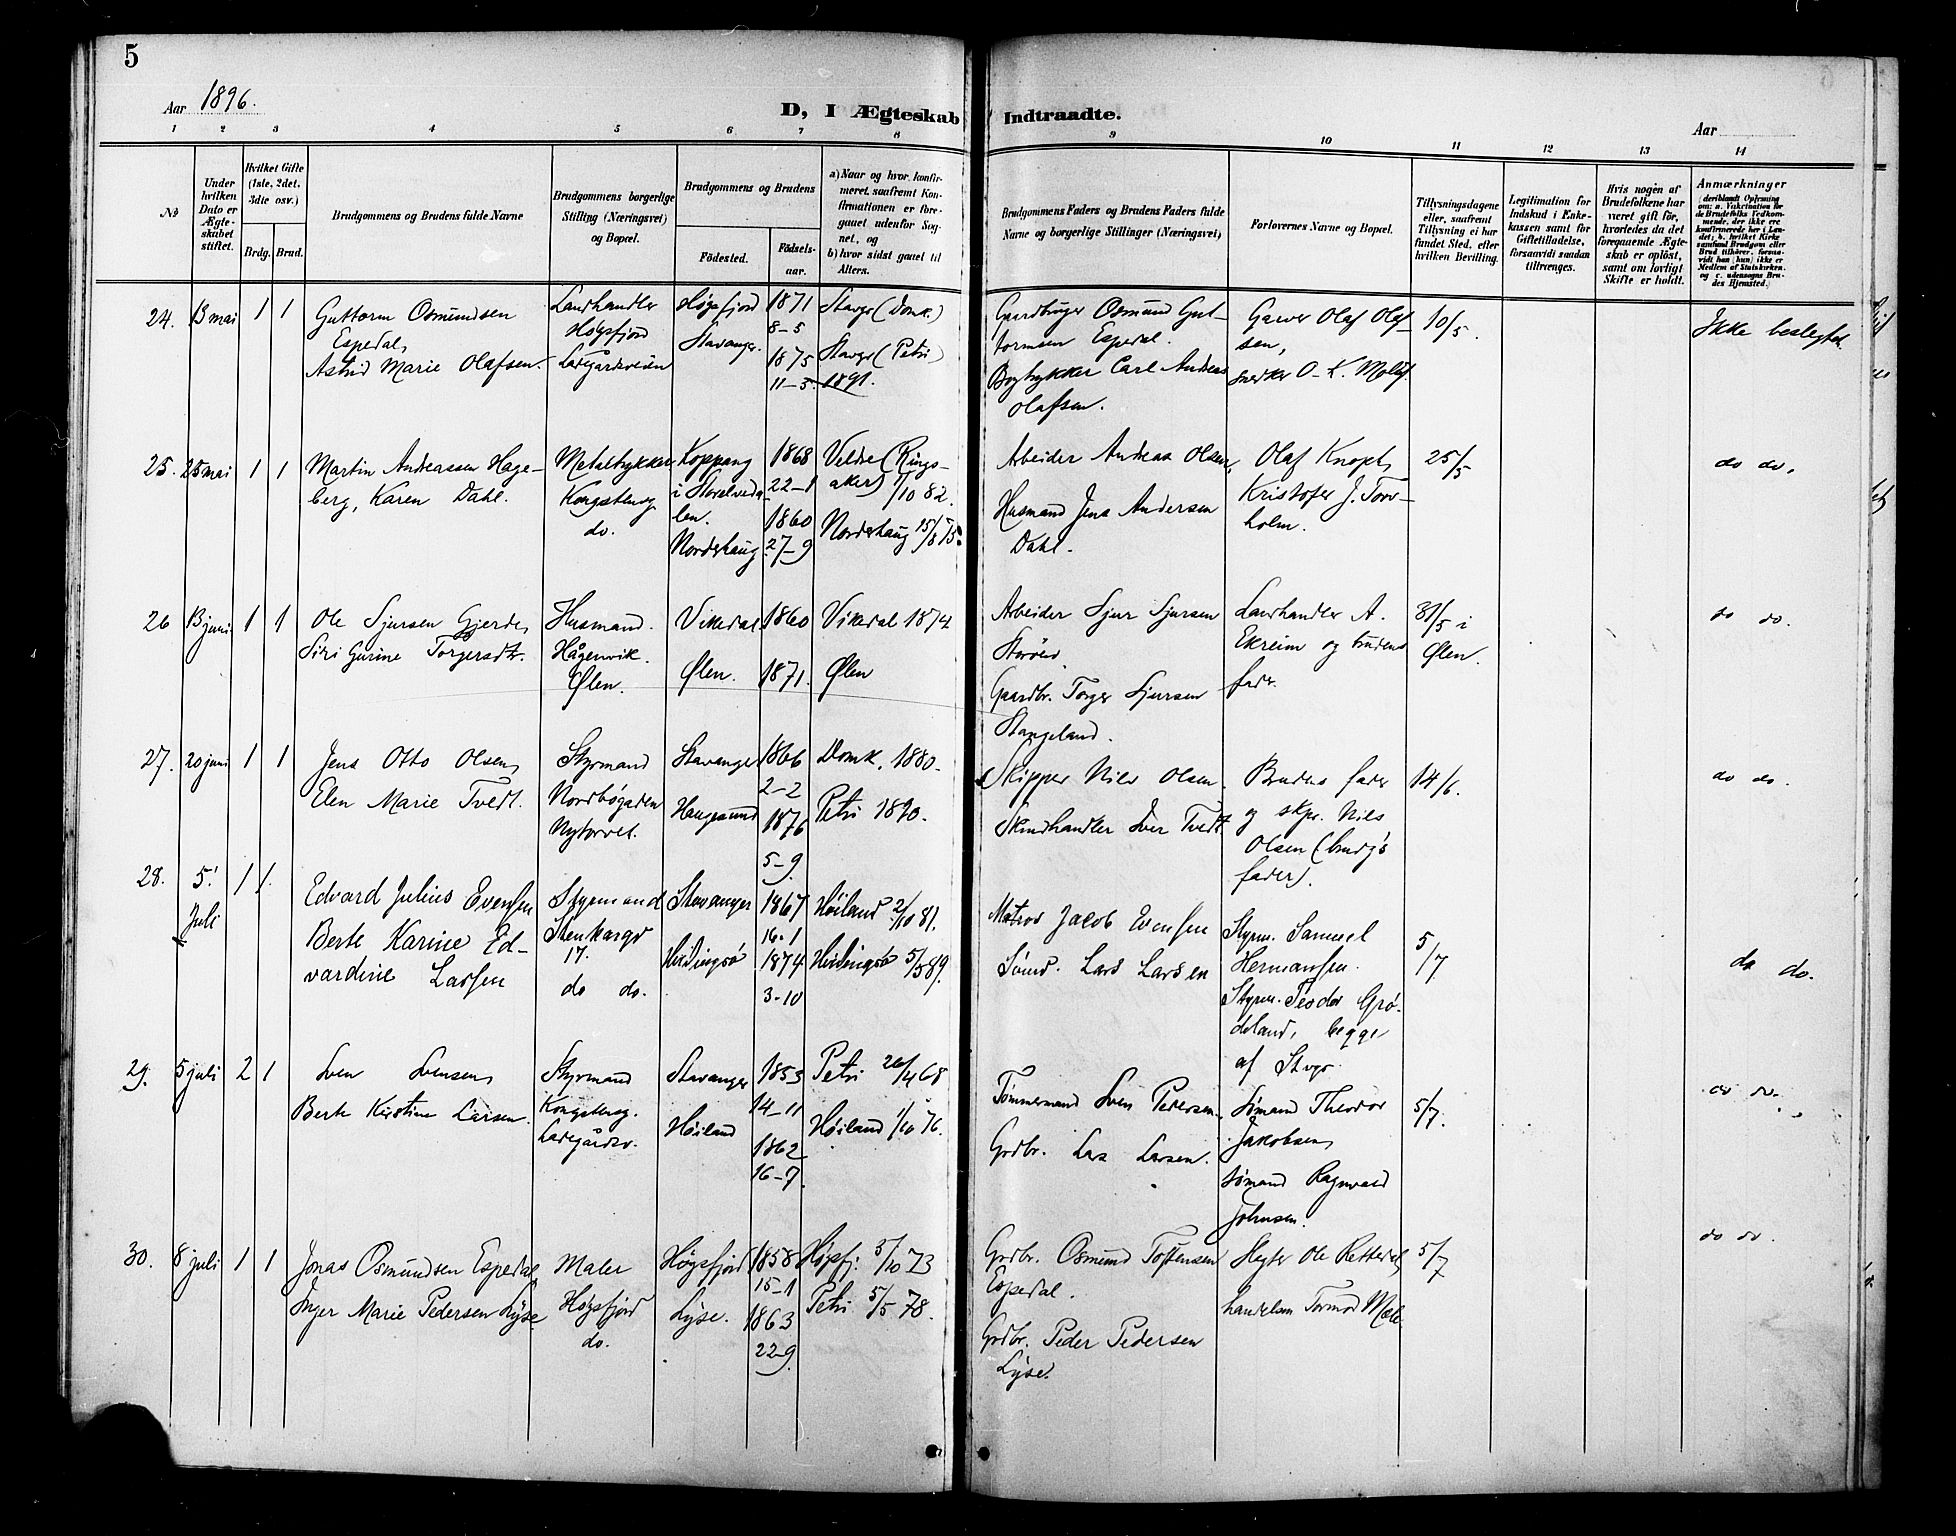 5
Aar 1896.
D, I Ægteskab Indtraadte.
Aar
1 2 3 4 5 6 7 8 9 10 11 12 13 14
No
Under hvilken Dato er Ægteskabet stiftet.
Hvilket Gifte (1ste, 2det, 3die osv.)
Brdg. Brud.
Brudgommens og Brudens fulde Navne
Brudgommens borgerlige Stilling (Næringsvei) og Bopæl.
Brudgommens og Brudens
Födested.
Födselsaar.
a) Naar og hvor konfirmeret, saafremt Konfirmationen er foregaaet udenfor Sognet, og
b) hvor sidst gaaet til Alters.
Brudgommens Faders og Brudens Faders fulde Navne og borgerlige Stillinger (Næringsvei)
Forlovernes Navne og Bopæl.
Tillysningsdagene eller, saafremt Tillysning ei har fundet Sted, efter hvilken Bevilling.
Legitimation for Indskud i Enkekassen samt for Giftetilladelse, forsaavidt saadan tiltrænges.
Hvis nogen af Brudefolkene har været gift för, hvorledes da det foregaaende Ægteskab er oplöst, samt om lovligt Skifte er holdt.
Anmærkninger
24. 13 mai 1 1 Guttorm Osmundsen
Espedal,
Astrid Marie Olafsen.
Landhandler
Høgsfjord
Ladegårdsveien
Høgsfjord
Stavanger.
1871
8-5
1875
11-5
Stavgr (Domk.)
Stavgr (Petri)
1891.
Gaardbruger Osmund Guttormsen Espedal.
Bogtrykker Carl Andreas
Olafsen.
Garver Olaf Olafsen,
snedker O. K.
10/5.
Ikke beslegtet.
25. 25 mai 1 1 Martin Andreassen Hageberg, Karen Dahl.
Metaltrykker
Kongsberg
do.
Koppang
i Storelvedalen.
Norderhaug
1868
22-1
1860
27-9
Veldre (Ringsaker) 1/10 82.
Norderhaug 15/8 75.
Arbeider Andreas Olsen,
Husmand Jens Andersen
Dahl.
Olaf Knopf,
Kristofer J. Torvholm.
25/5
do do.
26 13 juni 1 1 Ole Sjursen Gjerde,
Siri Gurine Torgersdtr.
Husmand.
Hågenvik.
Ølen.
Vikedal
Ølen.
1860
1871.
Vikedal 1874
Ølen
Arbeider Sjur Sjursen
Gaardbr. Torger Sjursen
Stangeland.
Landhandler A.
Ekreim og brudens
fader.
31/5 i
Ølen.
do do.
27. 20 juni 1 1 Jens Otto Olsen,
Elen Marie Tvedt.
Styrmand
Nordbøgaden
Nytorvet.
Stavanger
Haugesund
1866
2-2
1876
5-9
Domk. 1880.
Petri 1890.
Skipper Nils Olsen.
Skindhandler Iver Tvedt
Brudens fader
og skpr. Nils
Olsen (brudg's
fader).
14/6.
do do.
28. 5' Juli 1 1. Edvard Julius Evensen
Berte Karine Edvardine Larsen
Styrmand
Stenkargt
17.
do do.
Stavanger
Hvidingsø
1867
16-1
1874
3-10
Høiland 2/10 81.
Hvidingsø 5/5 89.
Matros Jacob Evensen
Sømd. Lars Larsen
Styrm. Samuel
Hermansen.
Styrm. Teodor Grødeland, begge
af Stvgr.
5/7
do do.
29. 5 juli 2 1 Sven Svensen,
Berte Kirstine Larsen.
Styrmand
Kongsberg.
Ladegårdsv.
Stavanger
Høiland
1853
14-11
1862
16-7.
Petri 26/4 68
Høiland 1/10 76.
Tømmermand Sven Pedersen.
Grdbr. Lars Larsen.
Sømand Theodor
Jakobsen,
sømand Ragnvald
Johnsen.
5/7.
do do.
30. 8 juli 1 1 Jonas Osmundsen Espedal
Inger Marie Pedersen Lyse
Maler
Høgsfjord
do.
Høgsfjord
Lyse.
1858
15-1
1863
22-9.
Høgsfj. 5/10 73
Petri 5/5 78.
Grdbr. Osmund Tostensen
Espedal.
Grdbr. Peder Pedersen
Lyse.
Slagter Ole Rettedal,
handelsm Tormod Mæle
5/7
do do.